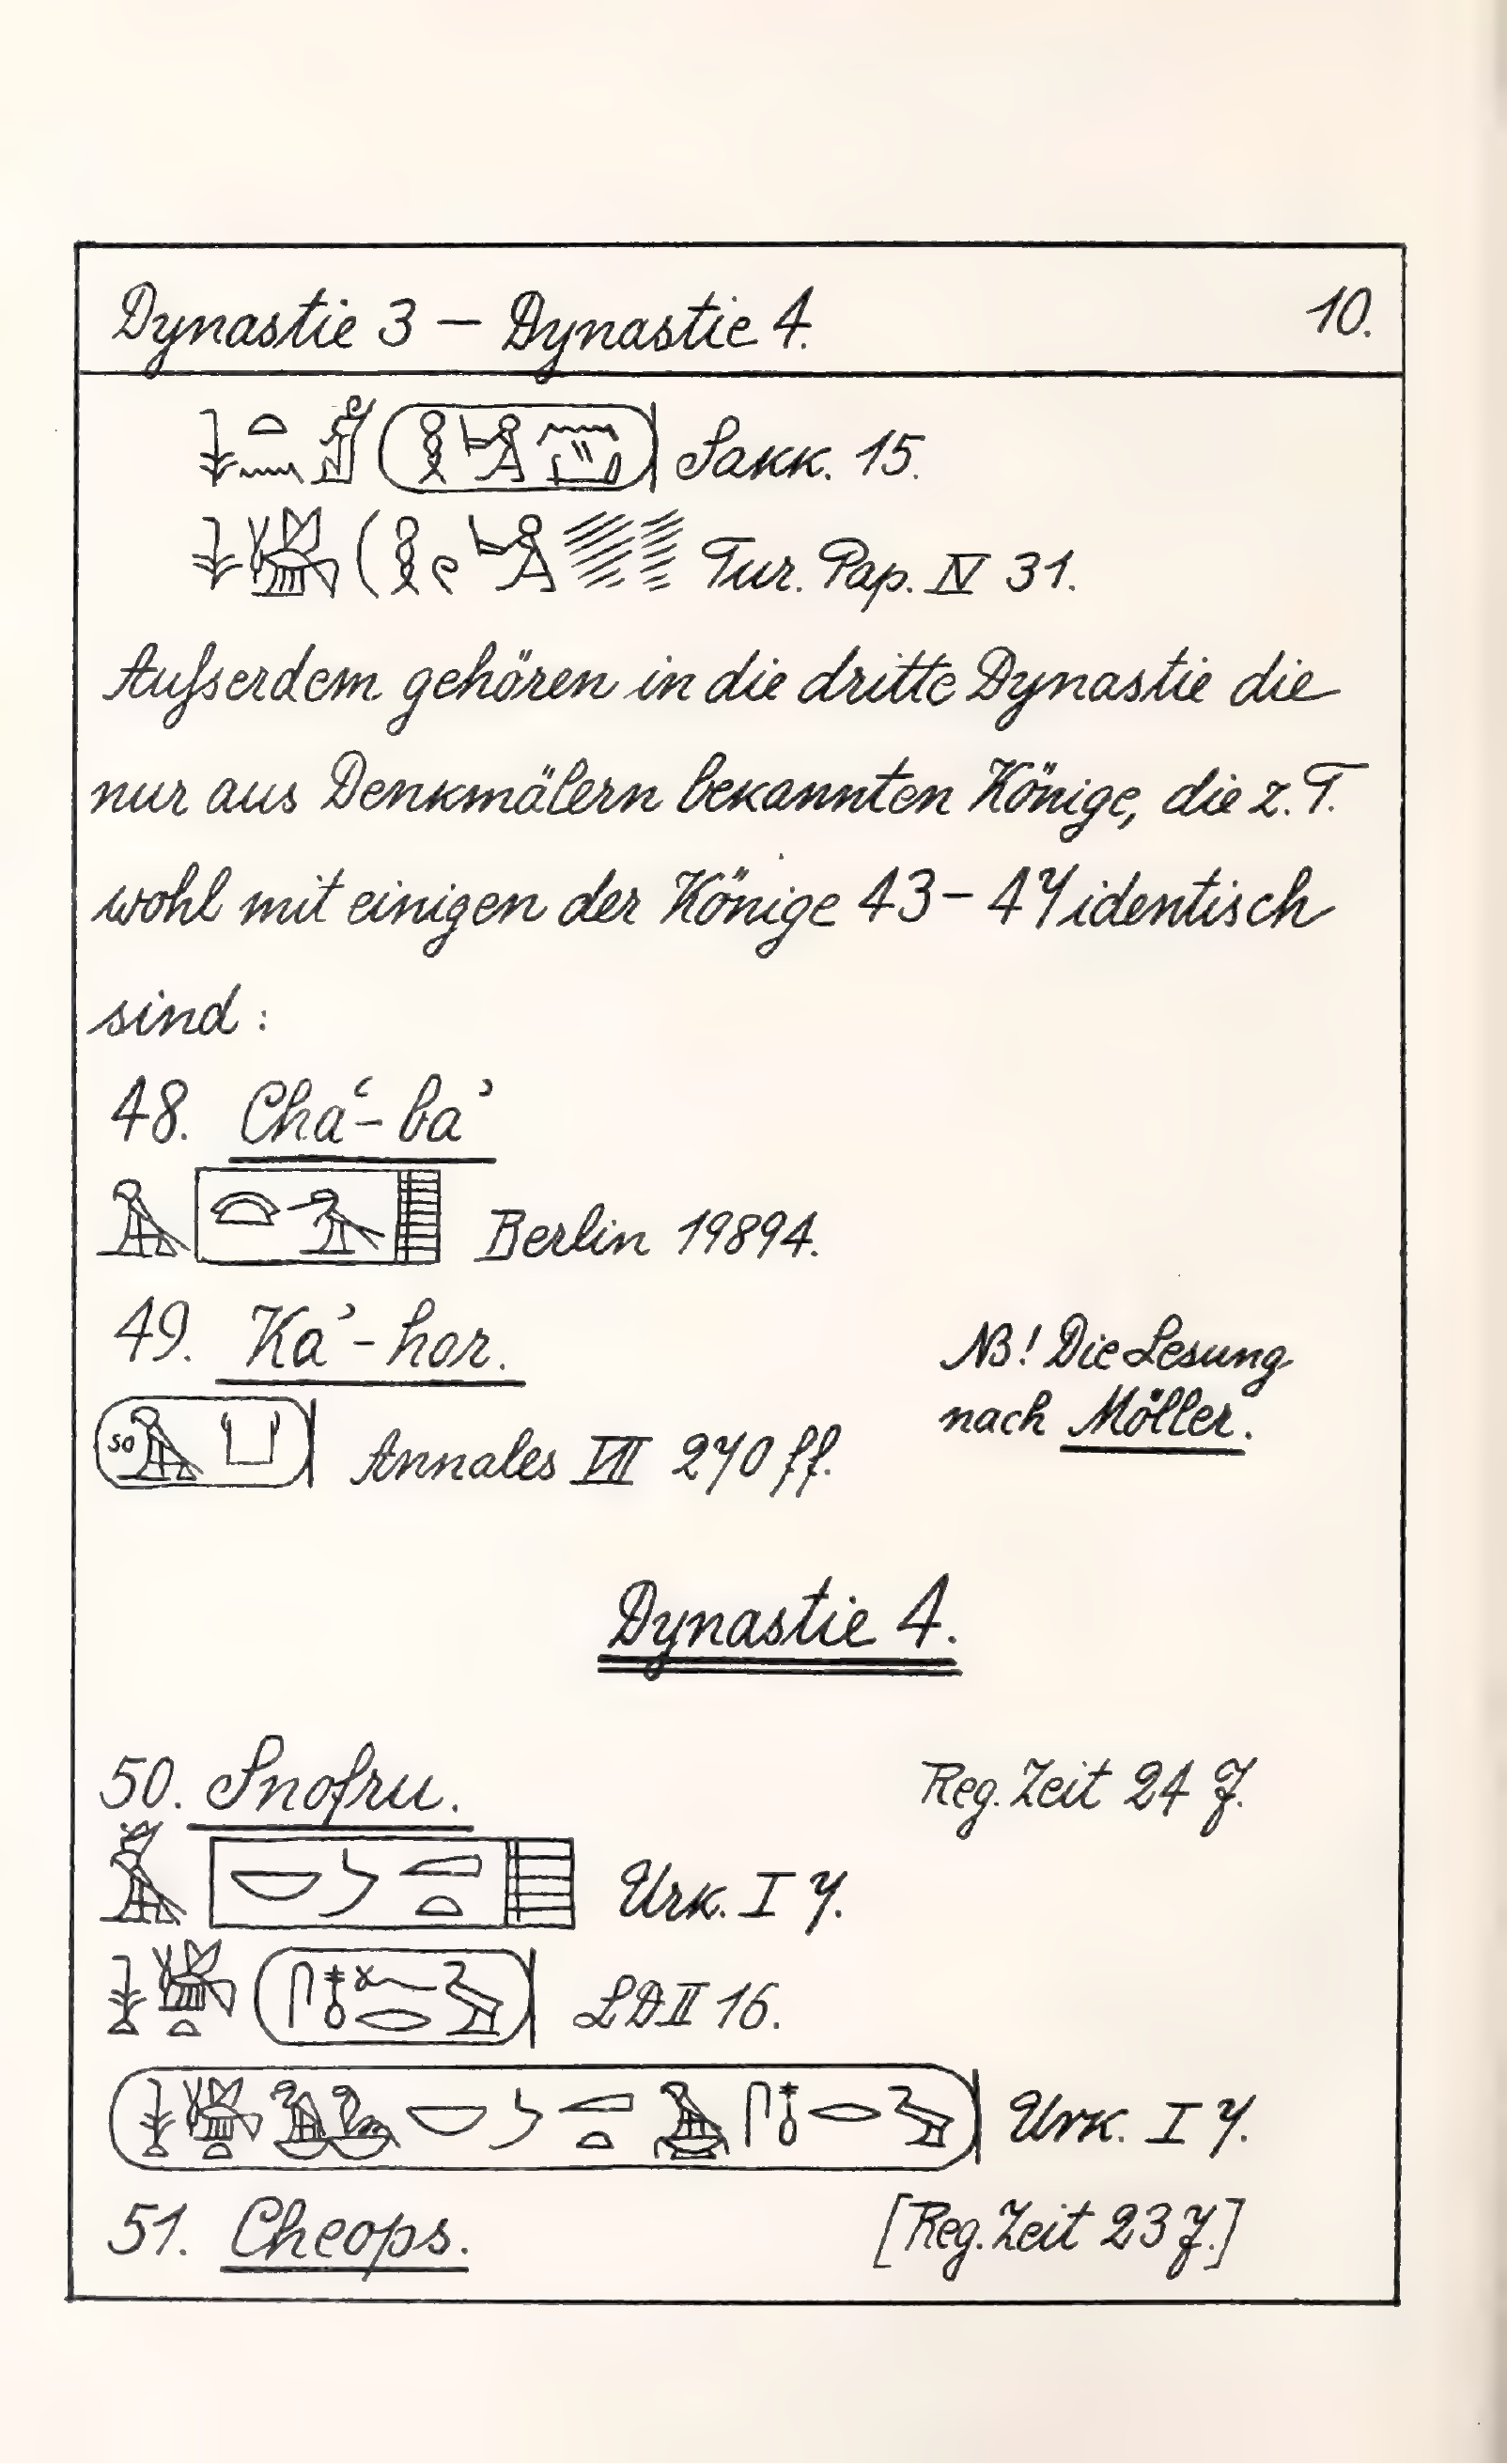 Dynastie 3 – Dynastie 4. 10.
Sakk. 15.
Tur. Pap. IV 31.
Aufserdem gehören in die dritte Dynastie die
nur aus Denkmälern bekannten Könige, die z. T.
wohl mit einigen der Könige 43 – 47 identisch
sind :
48. Chaʿ-baʾ
Berlin 19894.
49. Kaʾ-hor.
NB! Die Lesung
nach Möller.
so Annales VII 270 ff.
Dynastie 4.
50. Snofru. Reg. Zeit 24 J.
Urk. I 7.
LD II 16.
Urk. I 7.
51. Cheops. [Reg. Zeit 23 J.]